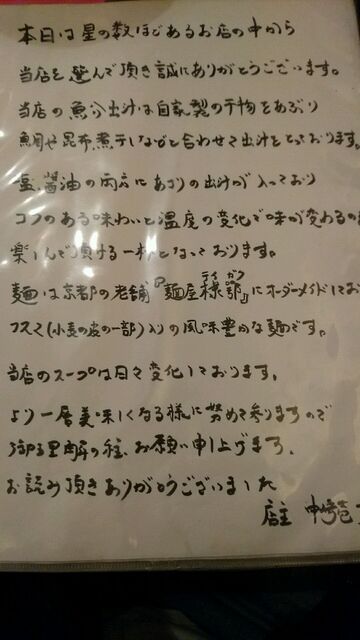 本日は星の数ほどあるお店の中から
当店を選んで頂き誠にありがとうございます。
当店の魚介出汁は自家製の干物をあぶり
鯛や昆布煮干しなどと合わせて出汁をとっております。
塩、醤油の両方にあさりの出汁が入っており
コクのある味わいと温度の変化で味が変わるの
楽しんで頂ける一杯となっております。
麺は京都の老舗『麺屋棣鄂』にオーダーメイドしてお
テイ ガク
フスマ(小麦の皮の一部)入りの風味豊かな麺です。
当店のスープは日々変化しております。
より一層美味しくなる様に努めて参りますので
御理解の程、お願い申し上げます。
お読み頂きありがとうございました
店主 中